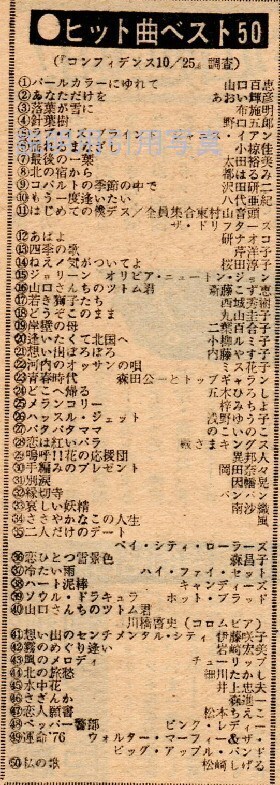 ●ヒット曲ベスト50
(『コンフィデンス10/25』調査)
①パールカラーにゆれて 山口百恵
②あなただけを あおい輝彦
③落葉が雪に 布施明
④針葉樹 野口五郎
イン・イアン
小椋佳
⑦最後の一葉 太田裕美
⑧北の宿から 都はるみ
⑨コバルトの季節の中で 沢田研二
⑩もう一度逢いたい 八代亜紀
⑪はじめての僕デス/全員集合東村山音頭
ザ・ドリフターズ
⑫あばよ 研ナオコ
⑬四季の歌 芹洋子
⑭ねえ!気がついてよ 桜田淳子
⑮ジョリーン オリビア・ニュートン・ジョン
⑯山口さんちのツトム君 斎藤こず恵
⑰若き獅子たち 西城秀樹
⑱どうぞこのまま 丸山圭子
⑲岸壁の母 二葉百合子
⑳逢いたくて北国へ 小柳ルミ子
㉑想い出ぼろぼろ 内藤やす子
㉒河内のオッサンの唄 ミス花子
㉓青春時代 森田公一とトップギャラン
㉔どこへ帰る 五木ひろし
㉕メランコリー 梓みちよ
㉖ハッスル・ジェット 浅野ゆう子
㉗パタパタママ のこいのこ
㉘恋は紅いバラ 殿さまキングス
㉙嗚呼!!花の応援団 異邦人
㉚手編みのプレゼント 岡田奈々
㉛別涙 因幡晃
㉜縁切寺 バンバン
㉝哀しい妖精 南沙織
㉞ささやかなこの人生 風
㉟二人だけのデート
ベイ・シティ・ローラーズ
㊱恋ひとつ雪景色 森昌子
㊲冷たい雨 ハイ・ファイ・セット
㊳ハート泥棒 キャンディーズ
㊴ソウル・ドラキュラ ホット・ブラッド
㊵山口さんちのツトム君
川橋啓史(コロムビア)
㊶想い出のセンチメンタル・シティ 伊藤咲子
㊷霧のめぐり逢い 岩崎宏美
㊸風のメロディ チューリップ
㊹北の旅愁 細川たかし
㊺水中花 井上忠夫
㊻さざんか 森進一
㊼恋人願書 松本ちえこ
㊽ペッパー警部 ピンク・レディー
㊾運命'76 ウォルター・マーフィー&ザ・
ビッグ・アップル・バンド
㊿私の歌 松崎しげる